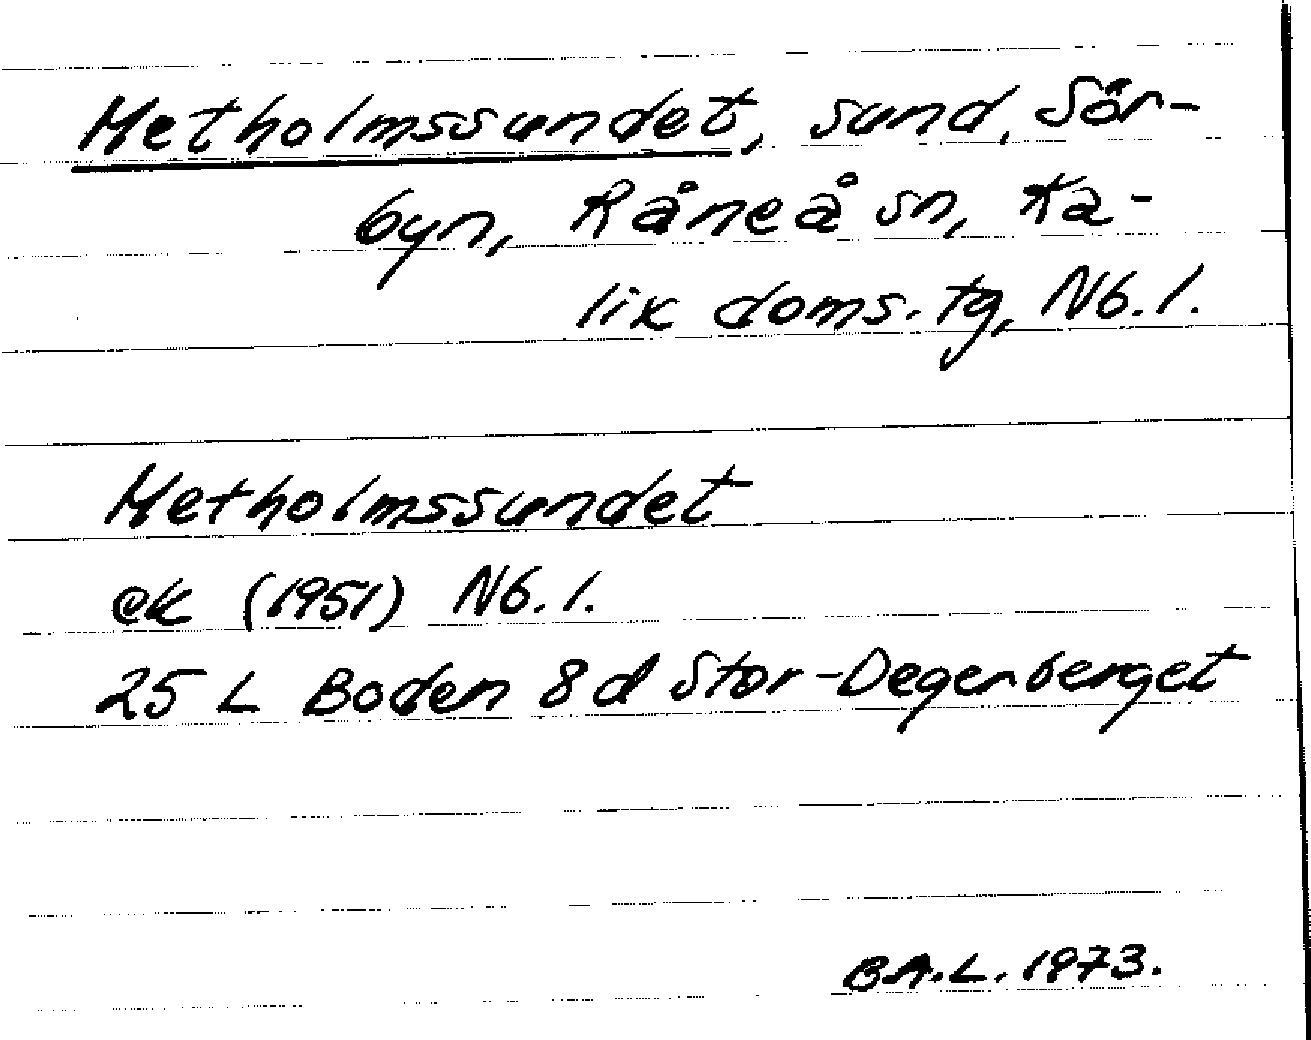 Metholmssundet, sund, Sör-
byn, Råneå sn, Ka-
lix doms. tg, Nb. l.
Metholmssundet
ek (1951) Nb. l.
25 L Boden 8 d Stor-Degerberget
B.A.L. 1973.